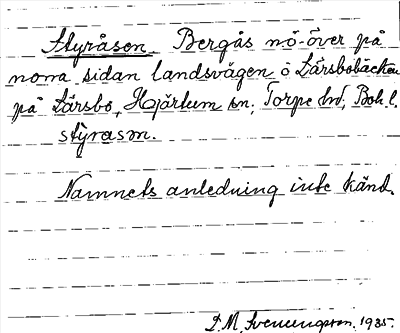 Styråsen. Bergås nö-över på
norra sidan landsvägen o Lärsbobäcken
på Lärsbo, Hjärtum sn, Torpe hd, Boh. l.
styrason.
Namnets anledning inte känd.
D. M. Svenungsson. 1935.